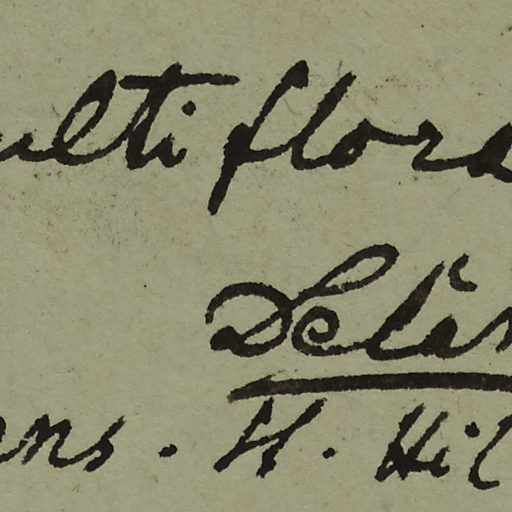 ultiflora
Delán
ns. H. Hil